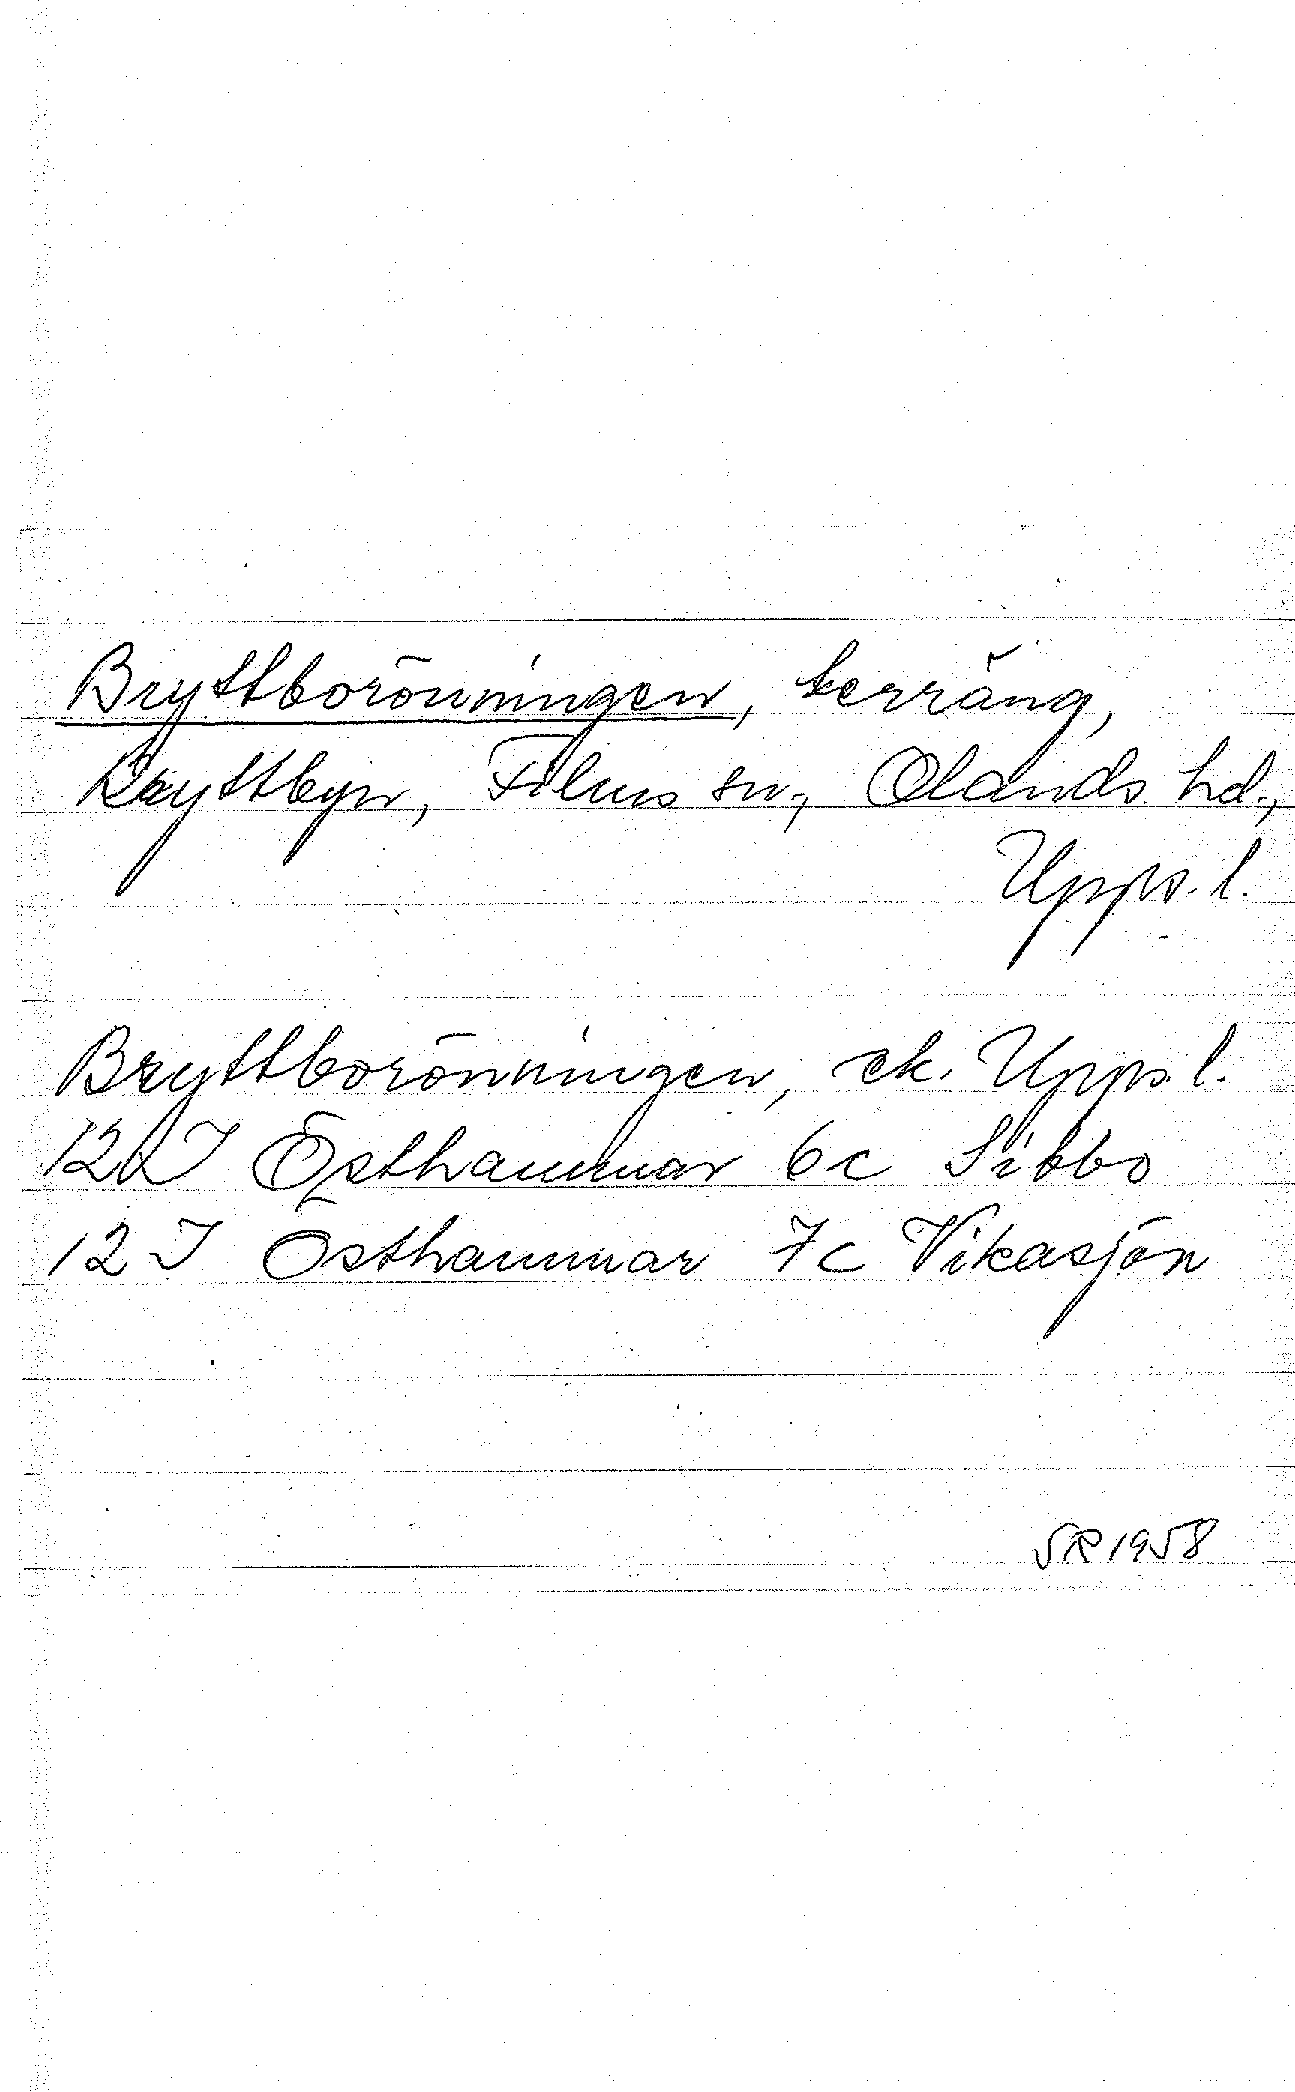 Bryttborönningen, terräng,
Bryttbyn, Films sn, Olands hd.,
Upps. l.
Bryttborönningen, ek. Upps. l.
12 I Östhammar 6c Sibbo
12 I Östhammar 7c Vikasjön
SR 1958